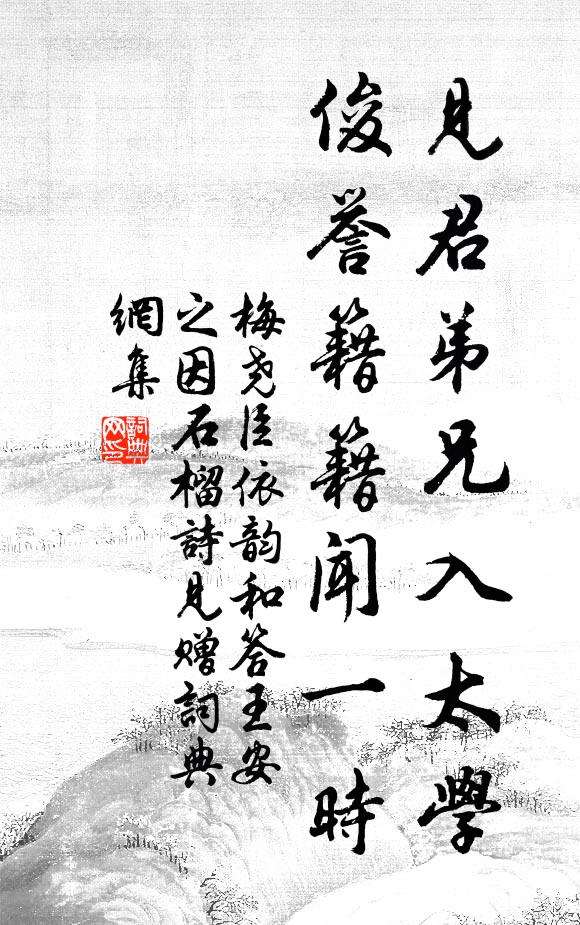 見君弟兄入太學
俊誉籍籍聞一時
梅尭臣依韵和答王安
之因石榴詩見贈詞典
網集
詞典
网印